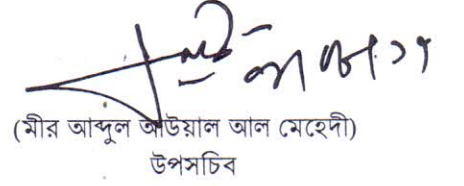 (মীর আব্দুল আউয়াল আল মেহেদী)
উপসচিব